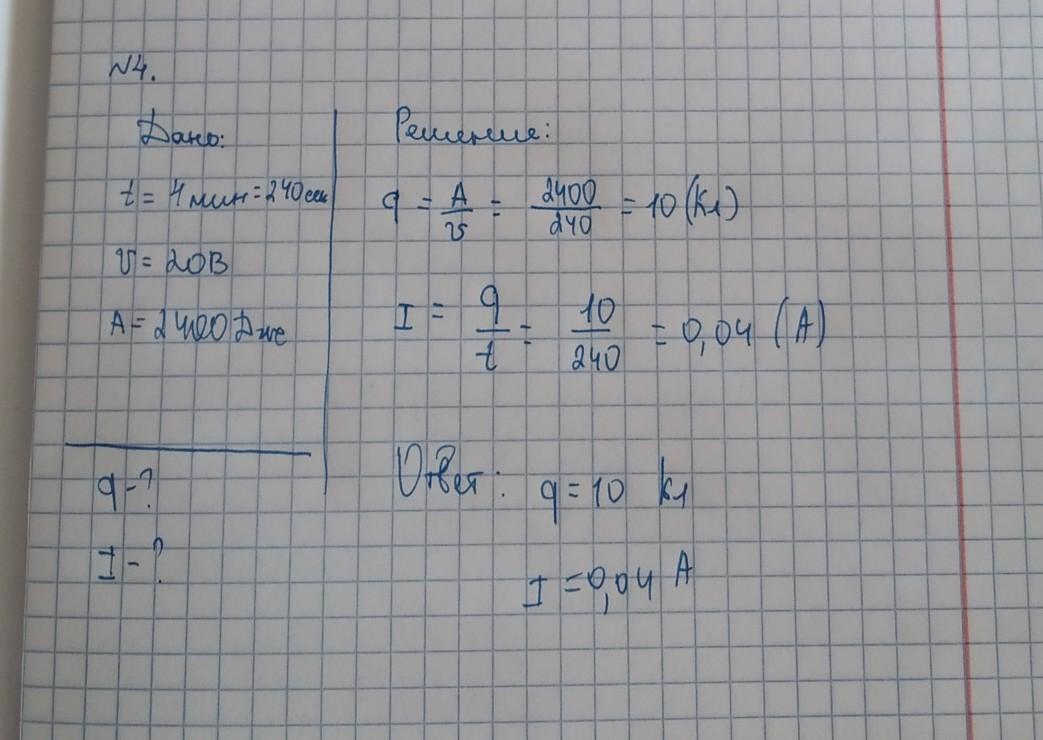 N4.
Дано:
t = 4 мин = 240 сек
U = 20В
A = 2400 Дже
q - ?
I - ?
Решение:
q = A/U = 2400/240 = 10 (Кл)
I = q/t = 10/240 = 0,04 (А)
Ответ: q = 10 Кл
I = 0,04 А